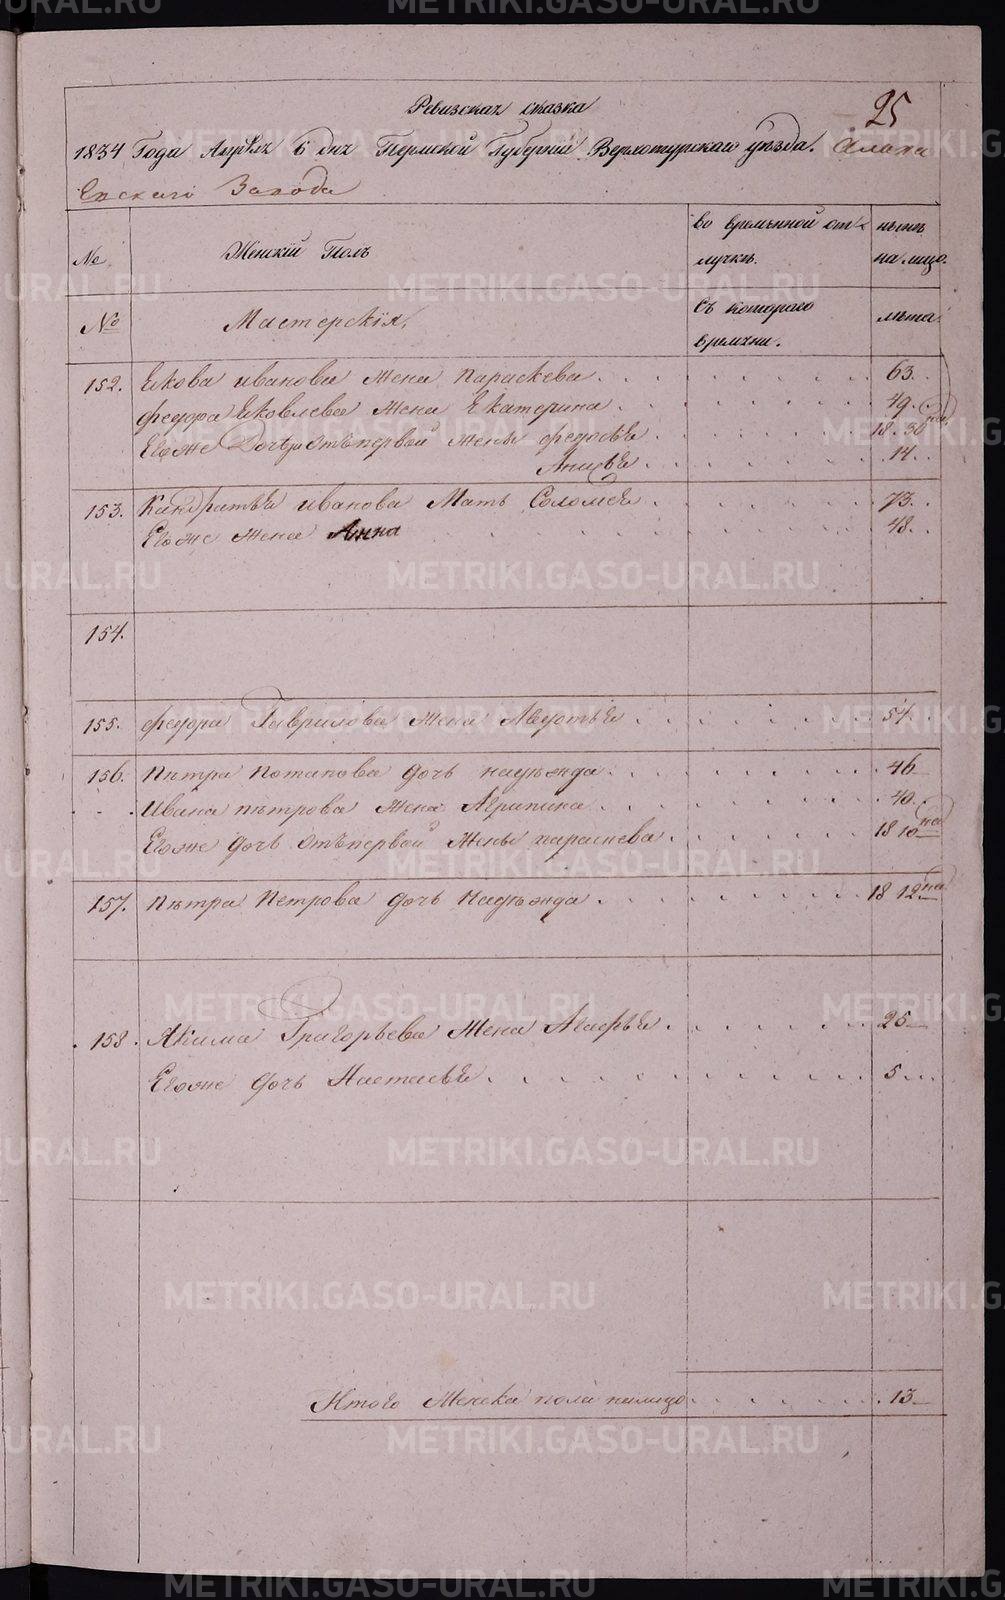 25
Ревизская сказка
1834 Года Апреля 6 дня Пермской Губернiи Верхотурскаго уезда. Алапа
евскаго Завода
№ Женскiй Полъ во временной от лучке. ныне на лицо.
№ Мастерскiя. Съ котораго времени. лета.
152. Якова Иванова Жена Параскева 63.
Федора Яковлева Жена Екатерина 49.
Егоже Дочери отъ первой жены Федосья 18.30на
Анисья 14.
153. Кандратья Иванова Мать Соломея 73.
Егоже Жена Анна 48.
154.
155. Федора Гаврилова Жена Авдотья 54.
156. Петра Потапова дочь Надежда 46
Ивана Петрова Жена Агрипина 40.
Егоже дочь отъ первой жены Параскева 18 10на
157. Петра Петрова дочь Надежда 18 12на
158. Якима Григорьева Жена Агафья 25
Егоже дочь Настасья 5
Итого Женска пола налицо 13
METRIKI.GASO-URAL.RU